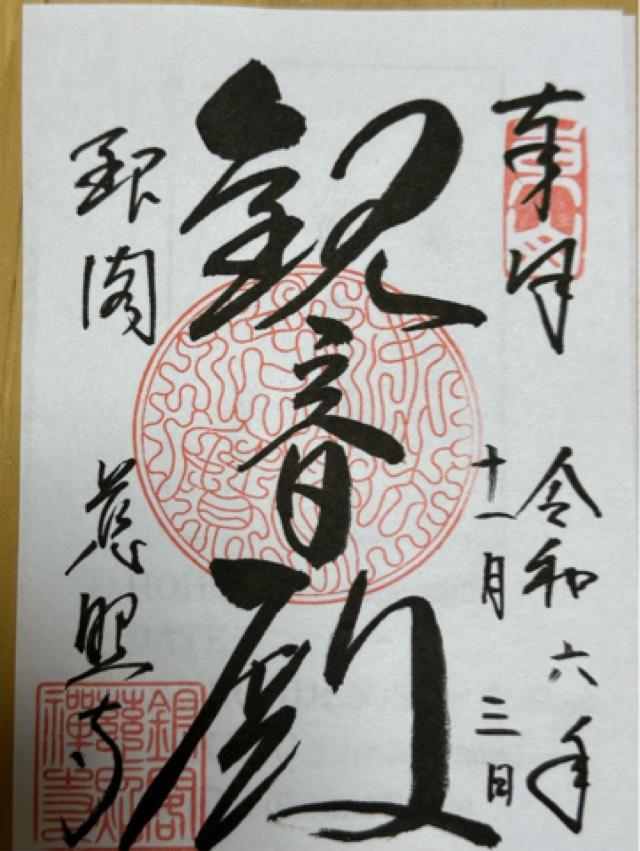 奉拝
令和六年
十一月三日
観音殿
銀閣
慈照寺
銀閣
慈照
禅寺